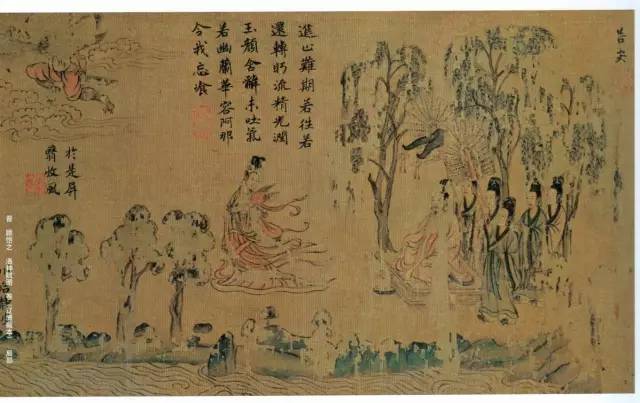 若安
進止難期若往若
還轉眄流精光潤
玉顏含辭未吐氣
若幽蘭華容阿那
令我忘飡
於是屏
翳收風
顾恺之 洛神赋图
局部